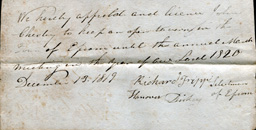 We hereby approbate and licence John
Chesley to keep an open tavern in the
of Epsom until the annual March
meeting in the year of our Lord 1820
December 13 1819 Richard Tripp Selectmen
of Epsom